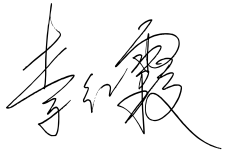 李红霞